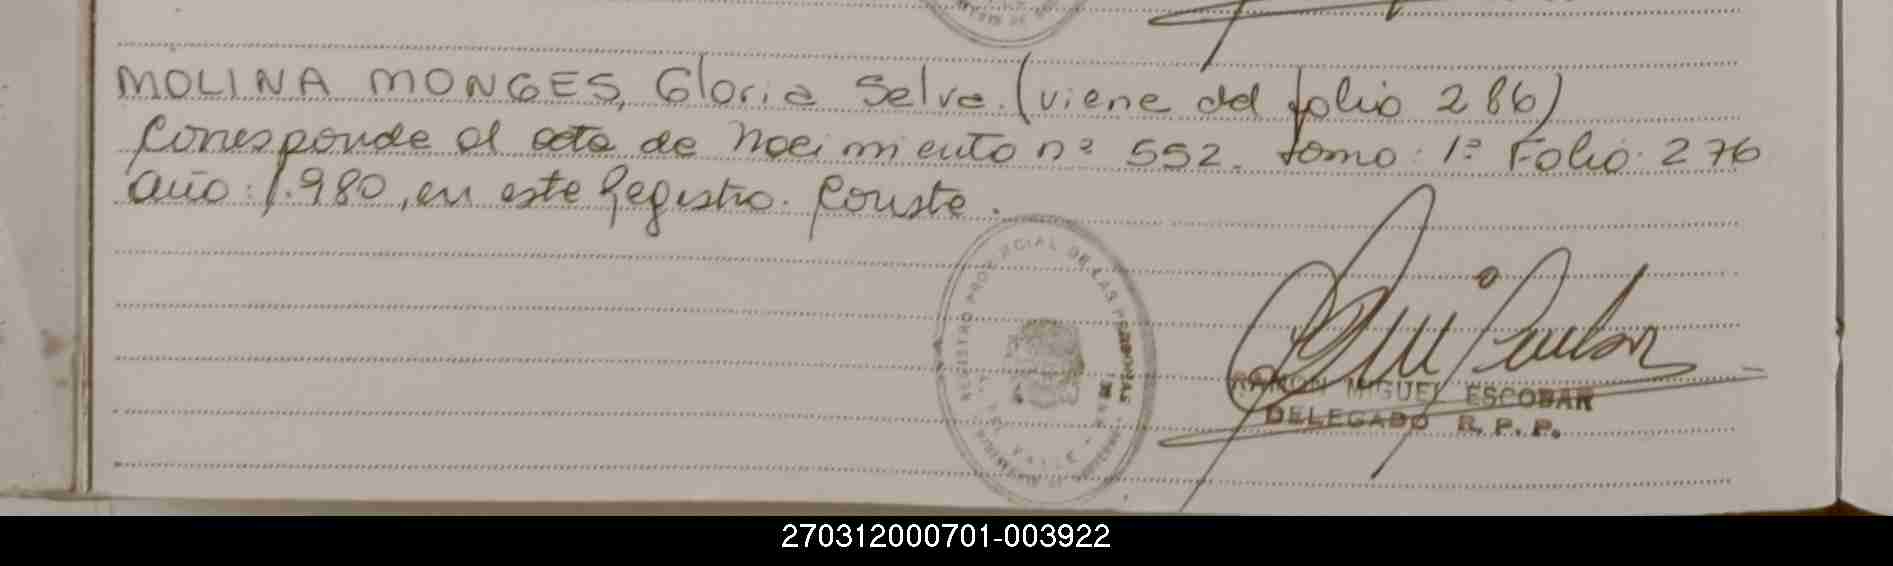 MOLINA MONGES, Gloria Selva. (viene del folio 286)
Corresponde al acta de Nacimiento nº 552. tomo: 1º Folio: 276
año: 1.980, en este Registro. Conste.
REGISTRO PROVINCIAL DE LAS PERSONAS
VALLE
RAMON MIGUEL ESCOBAR
DELEGADO R. P. P.
270312000701-003922